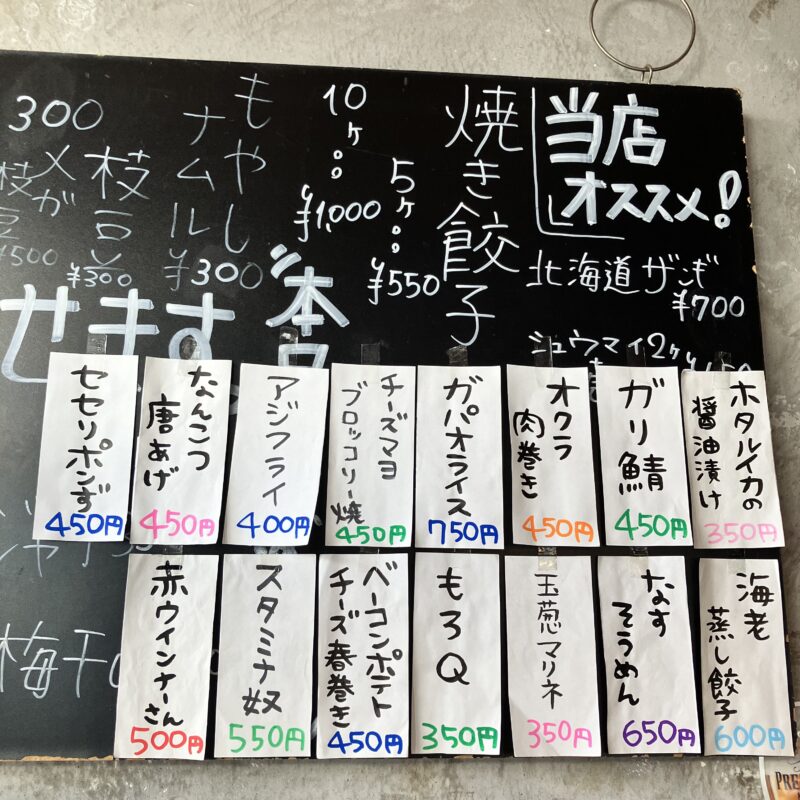 当店
オススメ!
北海道ザンギ
¥700
シュウマイ2ケ
焼き餃子
5ケ。。¥550
10ケ。。¥1,000
もやし
ナムル
¥300
枝豆
¥300
メガ
枝豆
¥500
300
せます
梅干
ホタルイカの
醤油漬け
350円
ガリ鯖
450円
オクラ
肉巻き
450円
ガパオライス
750円
チーズマヨ
ブロッコリー焼
450円
アジフライ
400円
なんこつ
唐あげ
450円
セセリポンず
450円
海老
蒸し餃子
600円
なす
そうめん
650円
玉葱マリネ
350円
もろQ
350円
ベーコンポテト
チーズ春巻き
450円
スタミナ奴
550円
赤ウインナーさん
500円